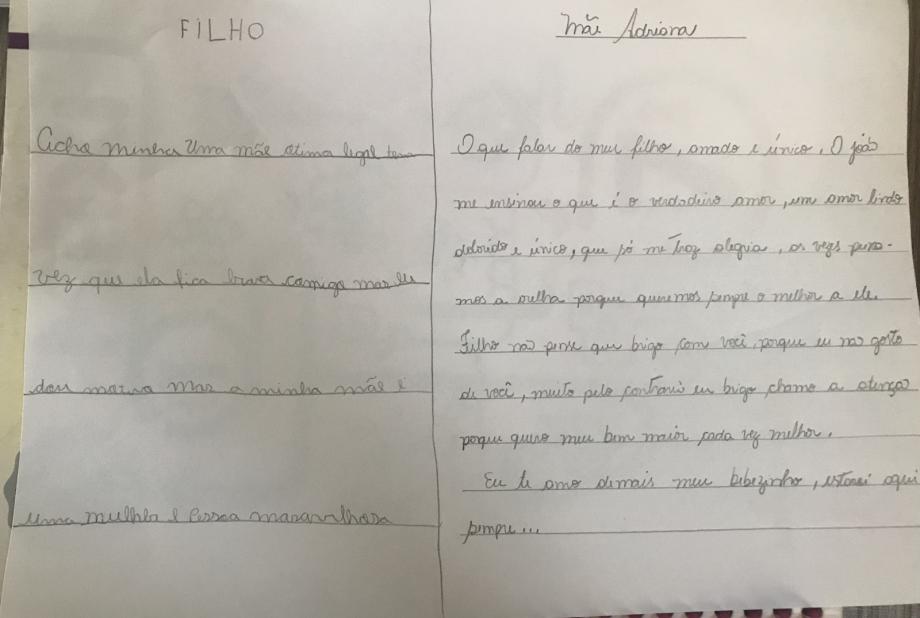 FILHO
Acho minha Uma mãe otima legal tem
vez que ela fica brava comigo mas eu
dou mas a minha mãe é
uma mulhe e Pessoa maravilhosa
Mãe Adriana
O que falar do meu filho, amado e único. O joão
me ensinou o que é o verdadeiro amor, um amor lindo
dolorido e único, que só me traz alegria, as vezes puxa-
mos a orelha porque queremos sempre o melhor a ele.
Filho não pense que brigo com você, porque eu nao gosto
de você, muito pelo contrario eu brigo, chamo a atençao
porque quero meu bem maior cada vez melhor.
Eu te amo demais meu bebezinho, estarei aqui
sempre...